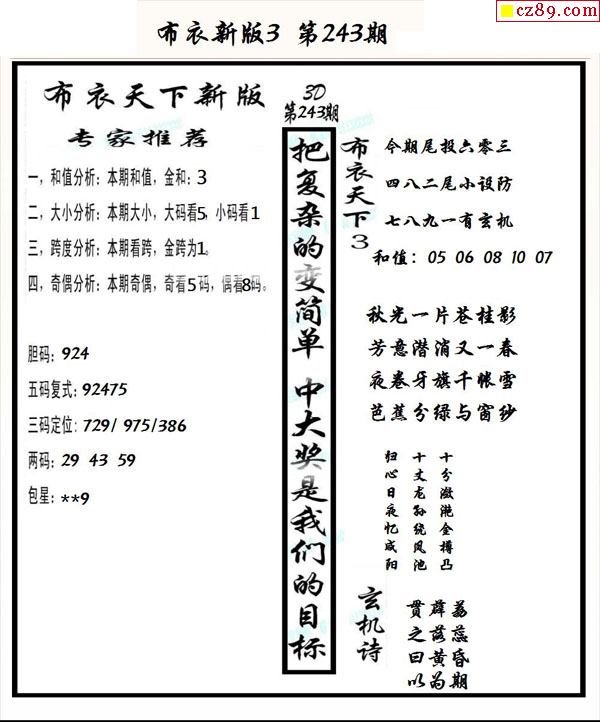 cz89.com
布衣新版3 第243期
布衣天下新版
专家推荐
一，和值分析：本期和值，金和：3
二，大小分析：本期大小，大码看5，小码看1
三，跨度分析：本期看跨，金跨为1。
四，奇偶分析：本期奇偶，奇看5码，偶看8码。
胆码：924
五码复式：92475
三码定位：729/ 975/386
两码：29 43 59
包星：**9
3D
第243期
把复杂的变简单 中大奖是我们的目标
布衣天下3
今期尾投六零三
四八二尾小设防
七八九一有玄机
和值：05 06 08 10 07
秋光一片苍桂影
芳意潜消又一春
夜卷牙旗千帐雪
芭蕉分绿与窗纱
十分潋滟金樽凸
十丈龙孙绕凤池
归心日夜忆咸阳
玄机诗
贯薜荔
之落蕊
曰黄昏
以为期